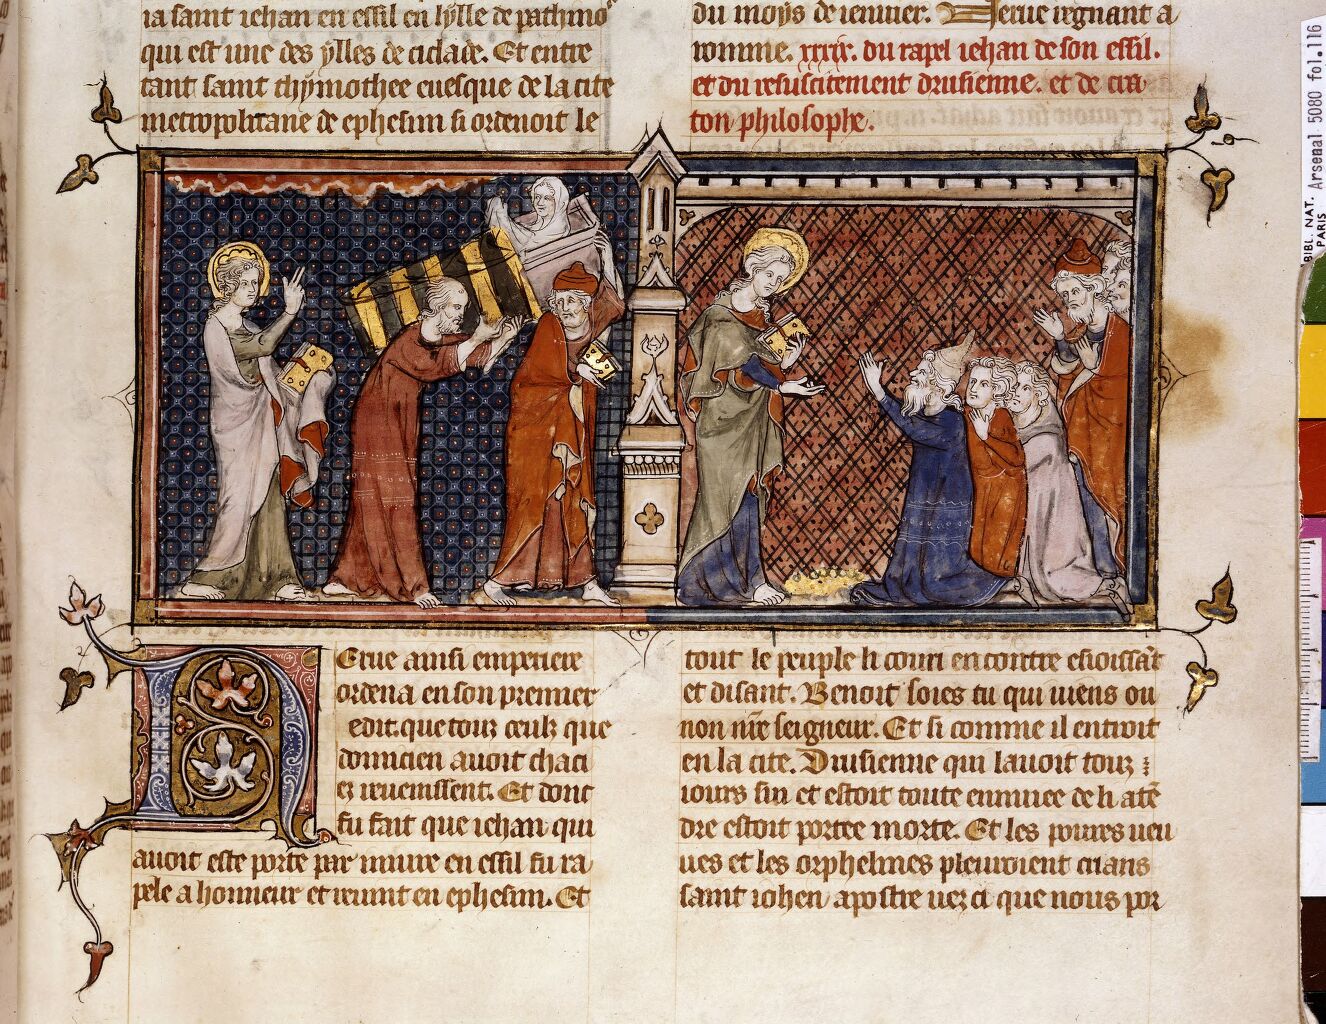 ia saint iehan en essil en lylle de pathmo
qui est une des ylles de ciclade. Et entre
tant saint thymothee euesque de la cite
metropolitane de ephesim si ordenoit le
du moys de ienuier. Nerue regnant a
romme. xxxix. du rapel iehan de son essil.
et du resuscitement drusienne. et de cra
ton philosophe.
Nerue ainsi emperiere
ordena en son premier
edit. que touz ceulz que
domicien auoit chaci
ez reuenissent. Et dont
fu fait que iehan qui
auoit este porte par iniure en essil fu ra
pele a honneur et reuint en ephesim. Et
tout le peuple li couri encontre esioissãt
et disant. Benoit soies tu qui uiens ou
non nr̃e seigneur. Et si comme il entroit
en la cite. Drusienne qui lauoit touz
iours siui et estoit toute ennuiee de li atẽ
dre estoit portee morte. Et les poures ueu
ues et les orphelines pleuroient crians
saint iohen apostre uez ci que nous por
BIBL. NAT. Arsenal 5080 fol.116
PARIS